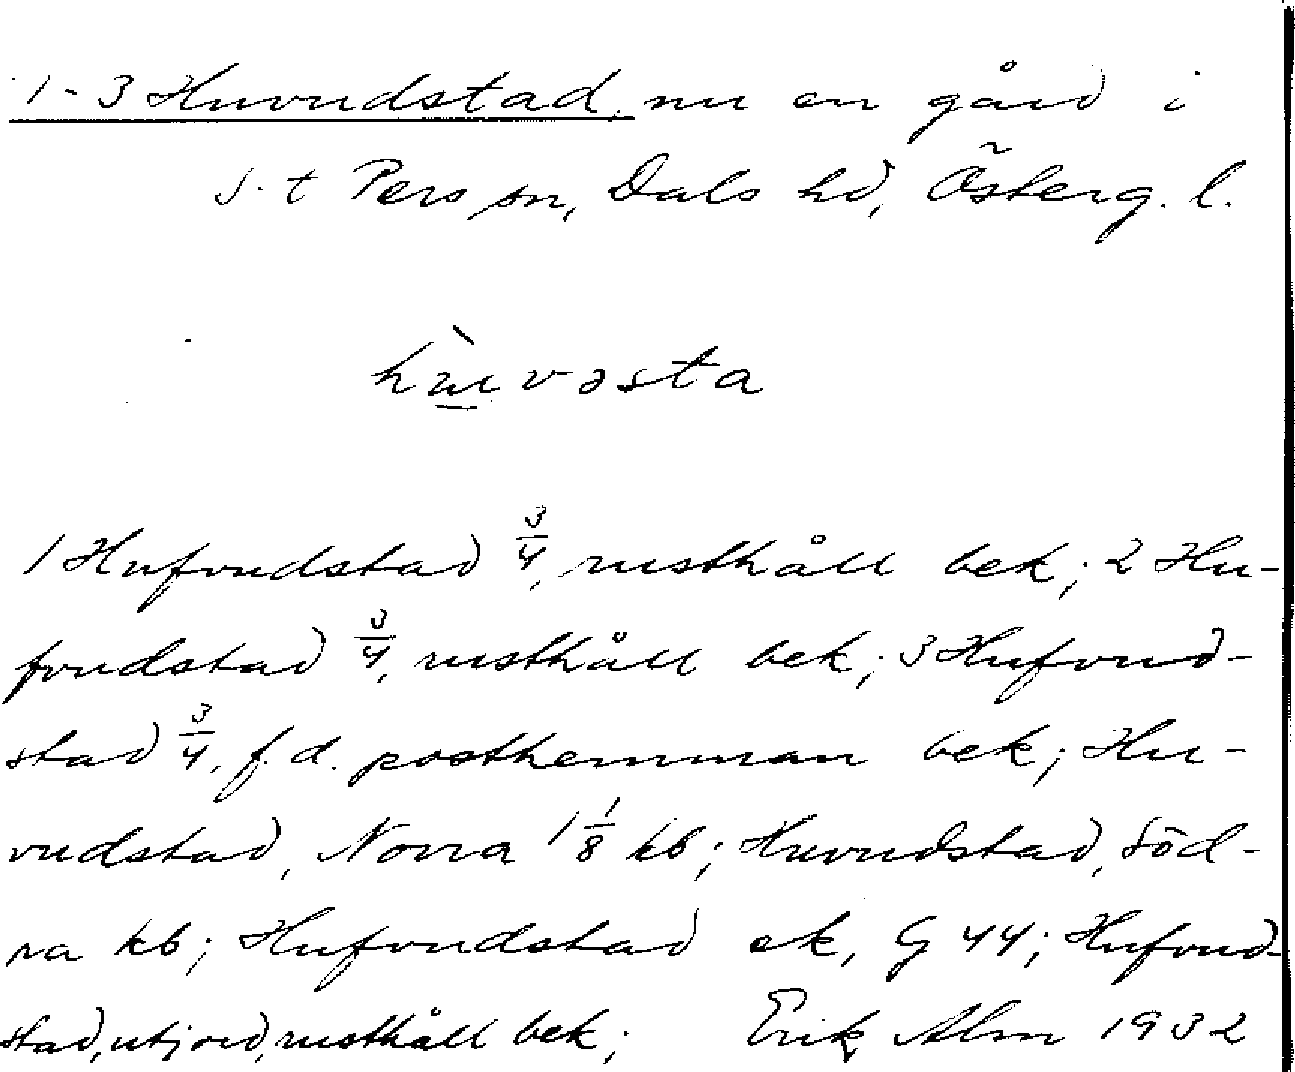 1-3 Huvudstad, nu en gård i
S:t Pers sn, Dals hd, Österg. l.
hùvəsta
1 Hufvudstad 3/4, rusthåll bek; 2 Hu-
fvudstad 3/4, rusthåll bek; 3 Hufvud-
stad 3/4, f. d. posthemman bek; Hu-
vudstad, Norra 1 1/8 kb; Huvudstad, Söd-
ra kb; Hufvudstad ek, G 44; Hufvud-
stad, utjord, rusthåll bek; Erik Alm 1932